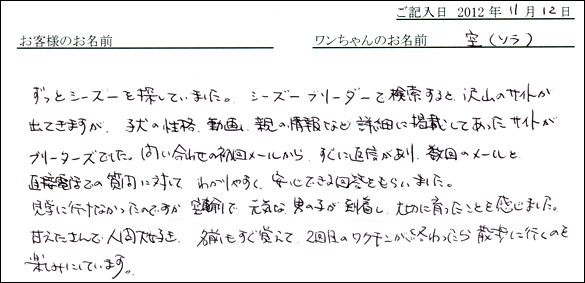 ご記入日 2012 年 11 月 12 日
お客様のお名前 ワンちゃんのお名前 空(ソラ)
ずっとシーズーを探していました。シーズーブリーダーで検索すると、沢山のサイトが
出てきますが、子犬の性格、動画、親の情報など詳細に掲載してあったサイトが
ブリーダーズでした。問い合わせの初回メールから、すぐに返信があり、数回のメールと
直接電話での質問に対して、わかりやすく、安心できる回答をもらいました。
見学に行けなかったのですが、空輸で、元気な男の子が到着し、大切に育ったことを感じました。
甘えたさんで、人間大好き、名前もすぐ覚えて、2回目のワクチンが終わったら散歩に行くのを
楽しみにしています。